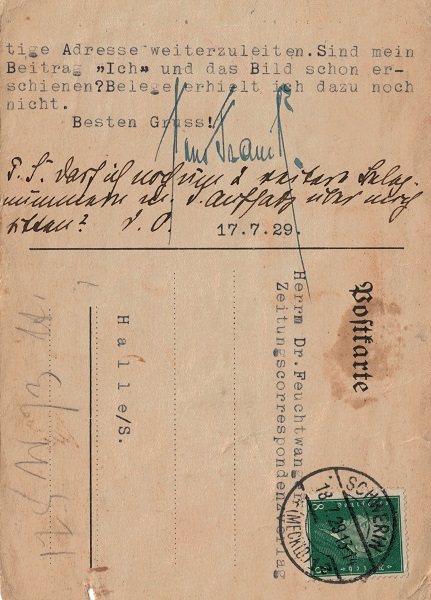 tige Adresse weiterzuleiten.Sind mein
Beitrag "Ich" und das Bild schon er-
schienen?Belege erhielt ich dazu noch
nicht.
Besten Gruss!
P. S. darf ich noch um 2 weitere Beleg-
nummern m. d. Aufsatz über mich
bitten? D. O.
17.7.29.
Postkarte
Herrn Dr.Feuchtwanger
Zeitungscorrespondenzverlag
Halle/S.
SCHWERIN
(MECKLB)
18.7.29
8
8